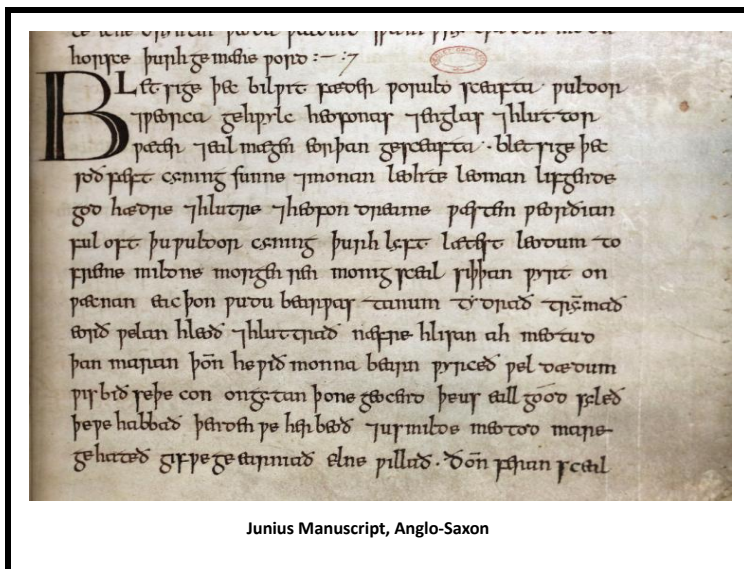 horsce þurh gemæne ƿord :– :7
BLetsige þec bilƿit fæder ƿoruld sceafta ƿuldor
⁊ƿeorca gehƿylc heofonas ⁊englas ⁊hlut tor
ƿæter ⁊eal mægen eorþan gesceafta · bletsige þec
soð fæst cyning sunne ⁊monan leohte leoman lifgende
god hædre ⁊hluttre ⁊heofon dreame ƿæstem ƿeorðian
ful oft þu ƿuldor cyning þurh lyft lætest leodum to
freme mildne morgen ren monig sceal siþþan ƿyrt on
ƿæcnan eac þon ƿudu bearƿas tanum tydrað trymað
eorð ƿelan hleoð ⁊hluttrað næfre hlisan ah meotud
þan maran þoñ he ƿið monna bearn ƿyrceð ƿel dædum
ƿis bið seþe con ongytan þone geocend þe us eall good syleð
þe ƿe habbað þenden ƿe her beoð ⁊us milde meotod mare
gehateð gif ƿe geearniað elne ƿillað · ðoñ feran sceal
Junius Manuscript, Anglo-Saxon